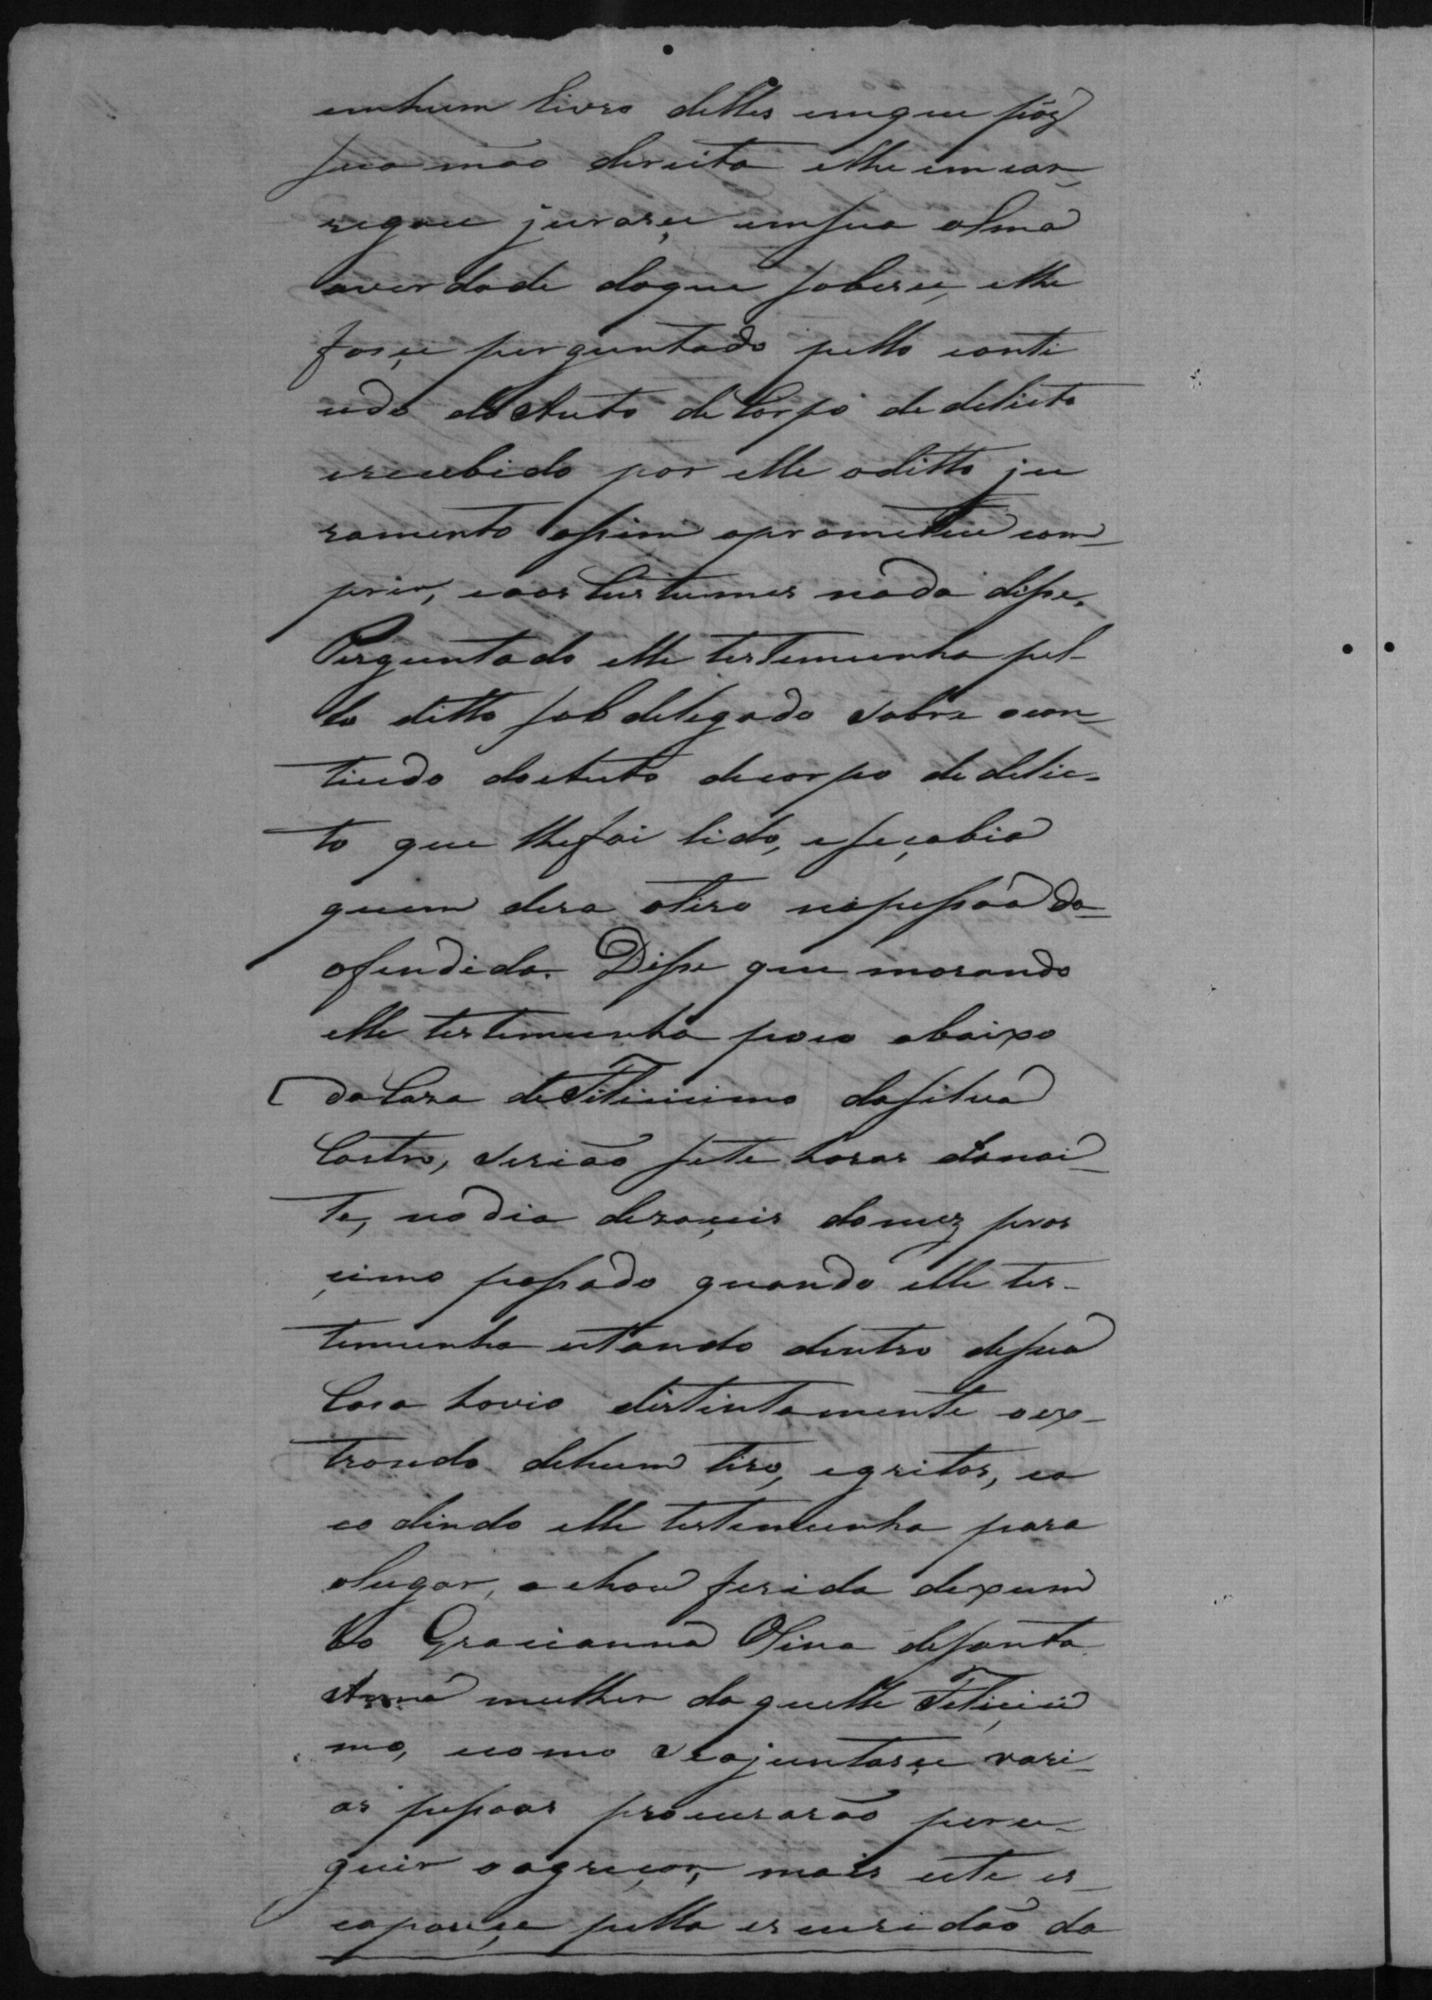 emhum livro delles emque pôz
sua mão direita elhe emcar-
regou juraçe emsua alma
averdade doque soberce, elhe
foçe perguntado pello conti
udo do Auto de Corpo de delicto
ercebido por elle oditto ju
ramento assim oprometeu com-
prir, eaos Custumes nada disse.
Perguntado elle testemunha pel-
lo ditto sobdelegado sobre ocon-
tiudo do Auto decorpo de delic-
to que lhefoi lido, eseçabia
quem dera otiro napessôa da-
ofendida. Disse que morando
elle testemunha poco abaixo
da Caza de Feliciimo dasilva
Castro, serião sete horas danoi-
te, nodia dezaçeis domez pros
çimo passado quando elle tes-
temunha estando dentro desua
Casa hovio distintamente oex-
trondo dehum tiro, egritos, ea
codindo elle testemunha para
olugar, achou ferida dexum
bo Gracianna Olina desanta
Anna mulher daquelle Feliçiii
mo, ecomo seajuntaçe vari-
as pessoas procurarão perce-
guir oagreçor, mais este es-
capouçe pella escuridão da